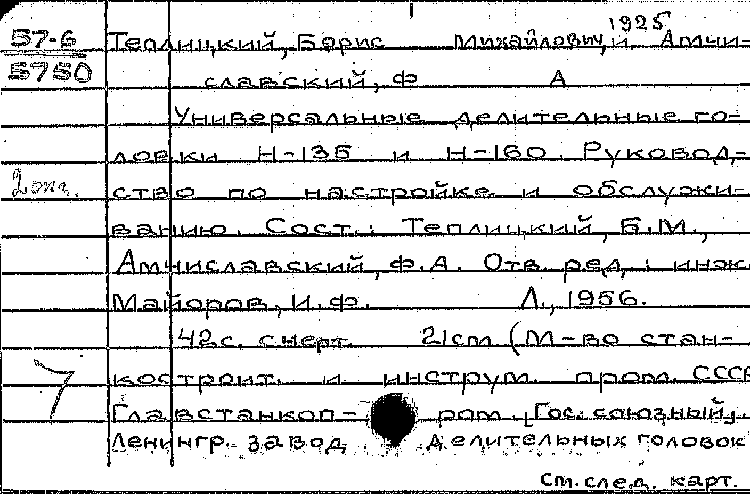 1925
57-6 Теплицкий, Борис Михайлович, и Амчи-
5750 славский, Ф А
Универсальные делительные го-
ловки Н-135 и Н-160. Руковод-
2 экз. ство по настройке и обслужи-
ванию. Сост.: Теплицкий, Б.М.,
Амчиславский, Ф.А. Отв. ред.: инж.
Майоров, И.Ф. Л., 1956.
42 с. с черт. 21 см (М-во стан-
7 костроит. и инструм. пром. СССР
Главстанкоп- ром. Гос. союзный.
Ленингр. завод делительных головок
См. след. карт.